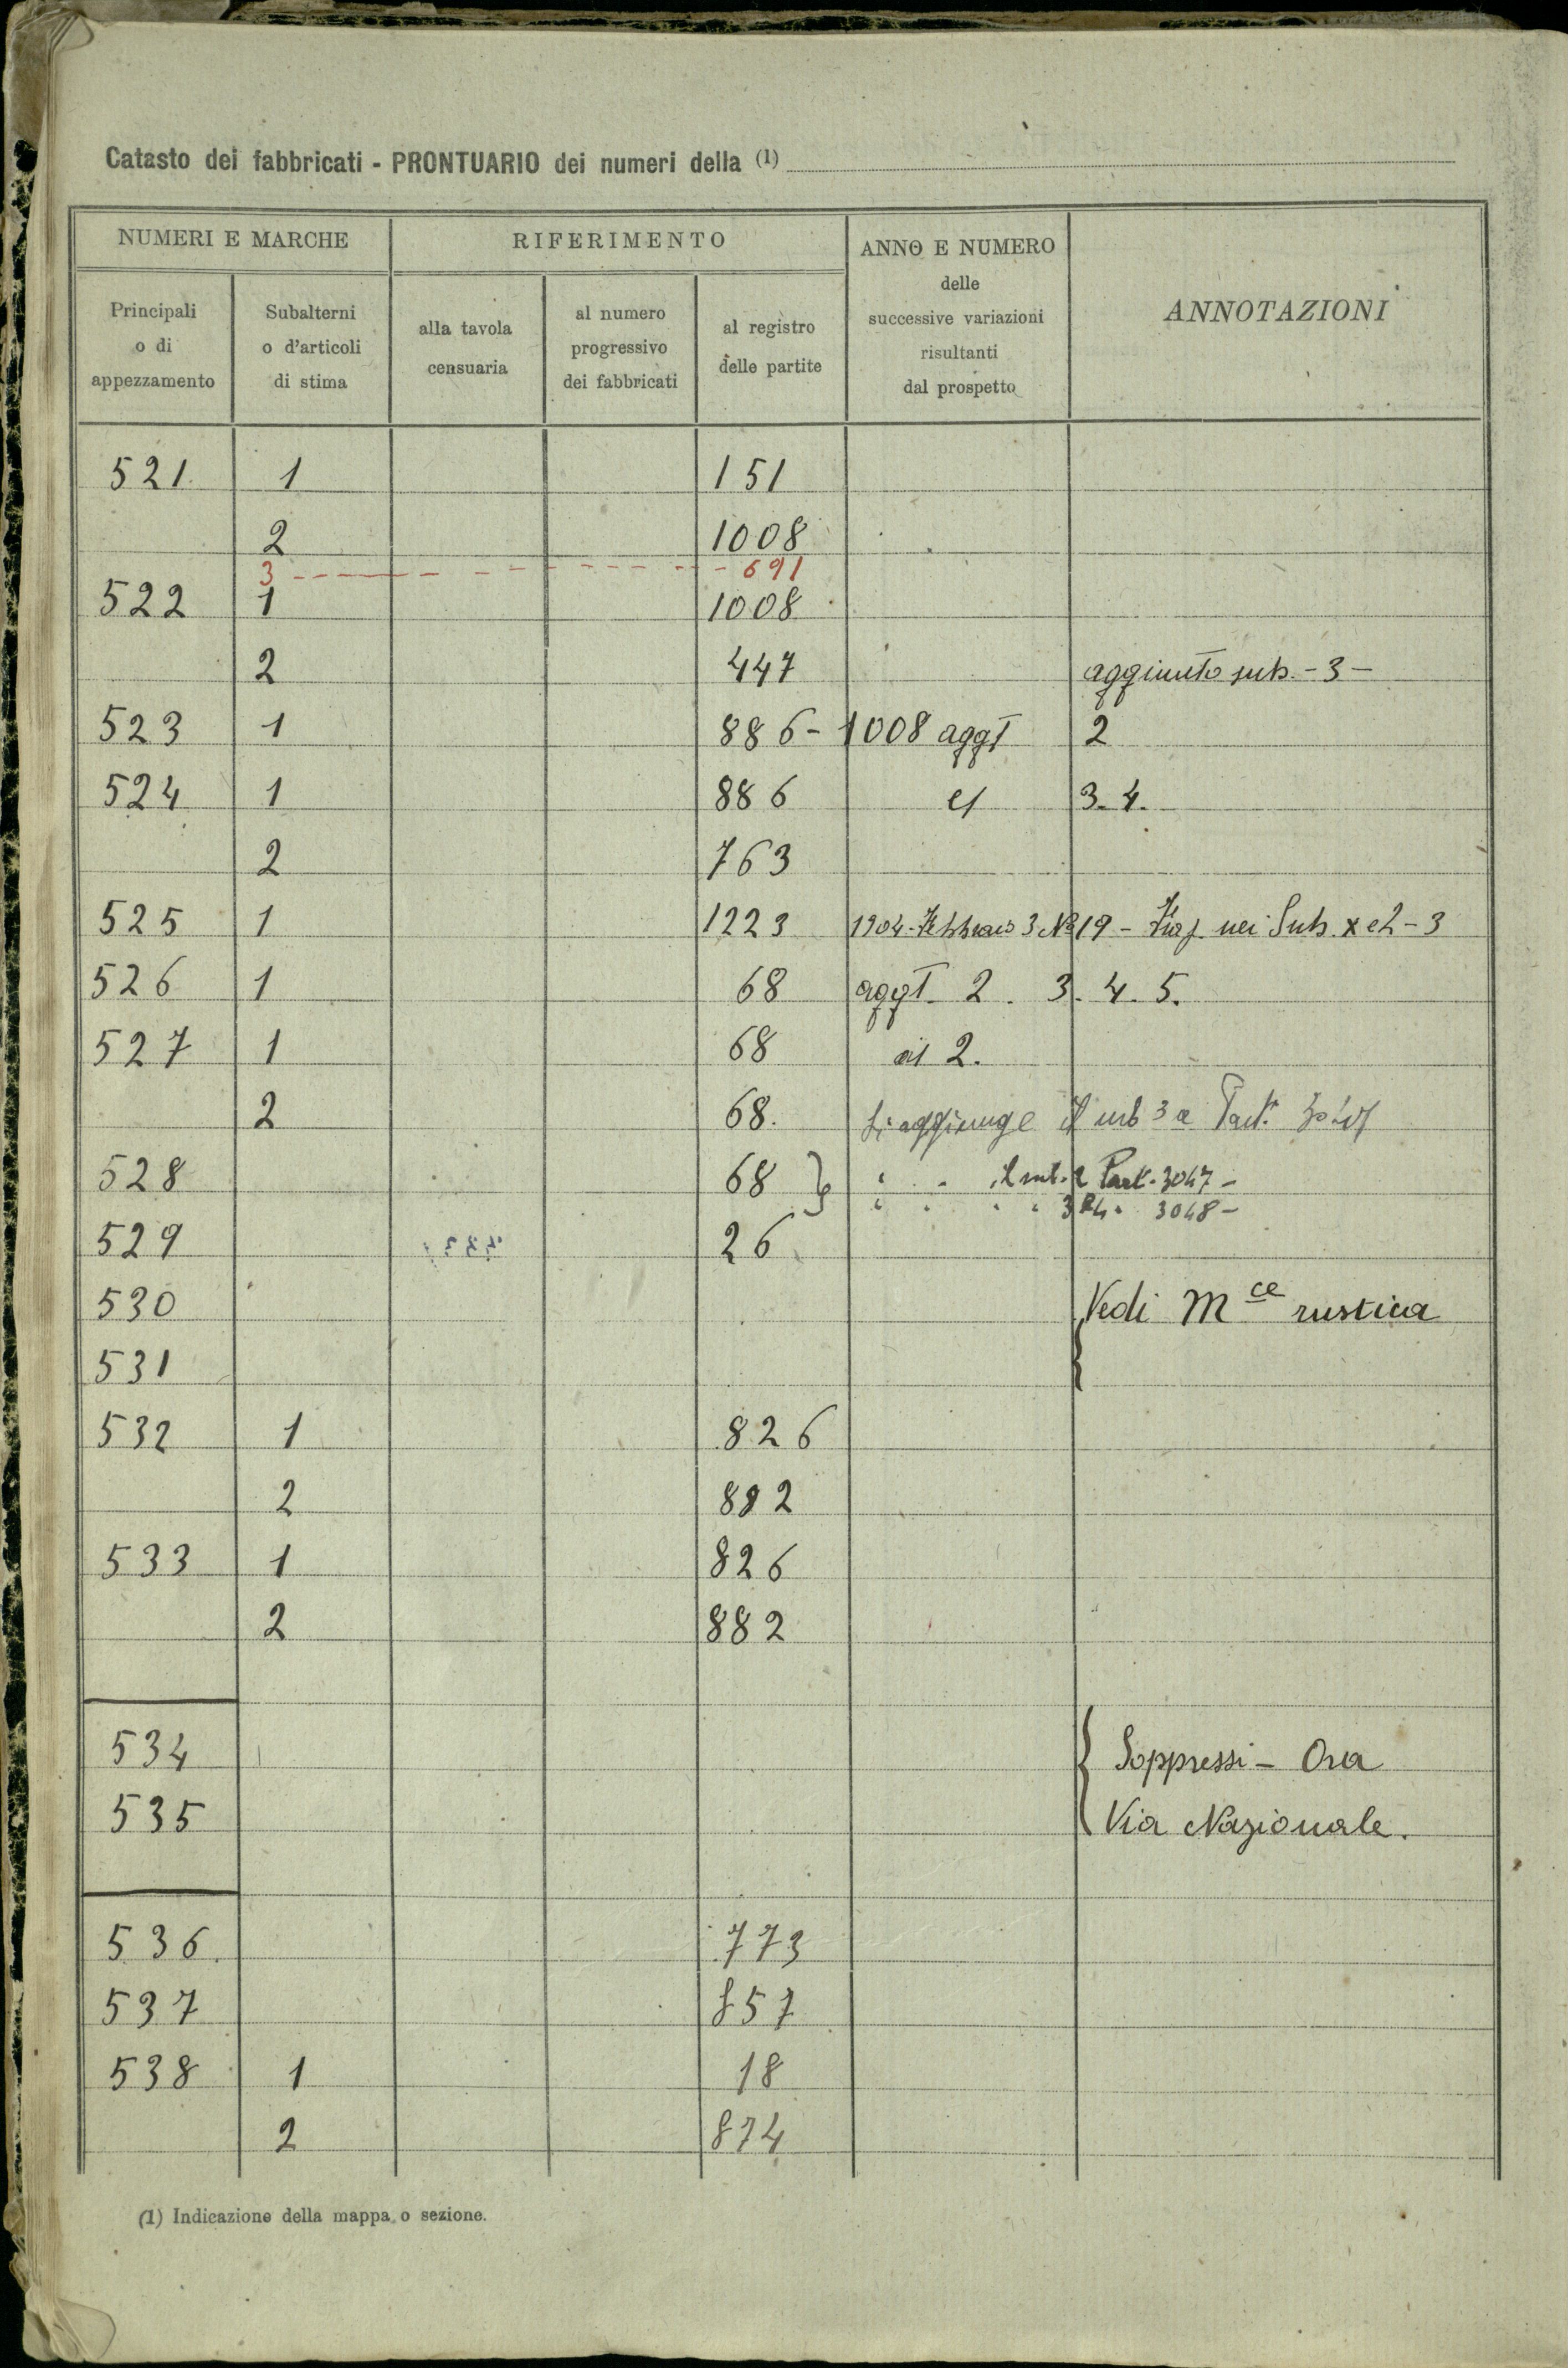 Catasto dei fabbricati - PRONTUARIO dei numeri della (1)
NUMERI E MARCHE RIFERIMENTO ANNO E NUMERO delle successive variazioni risultanti dal prospetto ANNOTAZIONI
Principali o di appezzamento Subalterni o d'articoli di stima alla tavola censuaria al numero progressivo dei fabbricati al registro delle partite
521 1 151
2 1008
3 - - - - - - - - - 691
522 1 1008
2 447 aggiunto sub. - 3 -
523 1 886 - 1008 aggt 2
524 1 886 3. 4.
2 763
525 1 1223 1904 - Febbraio 3 No 19 - nei Sub. x e 2 - 3
526 1 68 aggt. 2. 3. 4. 5.
527 1 68 2.
2 68. Si aggiunge il sub 3 a Part.
528 68 } " " il sub. 2 Part. 3047 -
" " " " 3 e 4 " 3048 -
529 26
530 Vedi Mce rustica
531
532 1 826
2 882
533 1 826
2 882
534 Soppressi - Ora
535 Via Nazionale.
536. 773
537 857
538 1 18
2 874
(1) Indicazione della mappa o sezione.